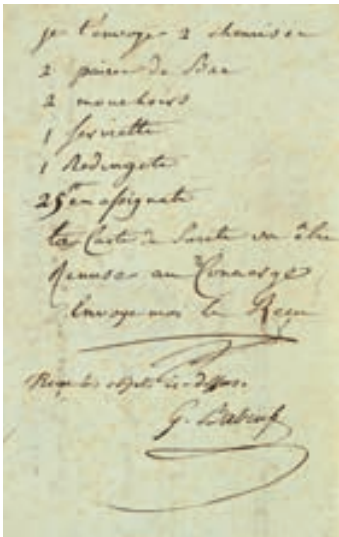 je t'envoye 2 chemises
2 paires de Bas
2 mouchoirs
1 serviette
1 Redingote
25ᵗᵗ en assignats
ta Carte de Sureté va être
Remise au Concierge
Envoye moi le Reçu
Reçu les objets ci-dessus.
G. Babeuf